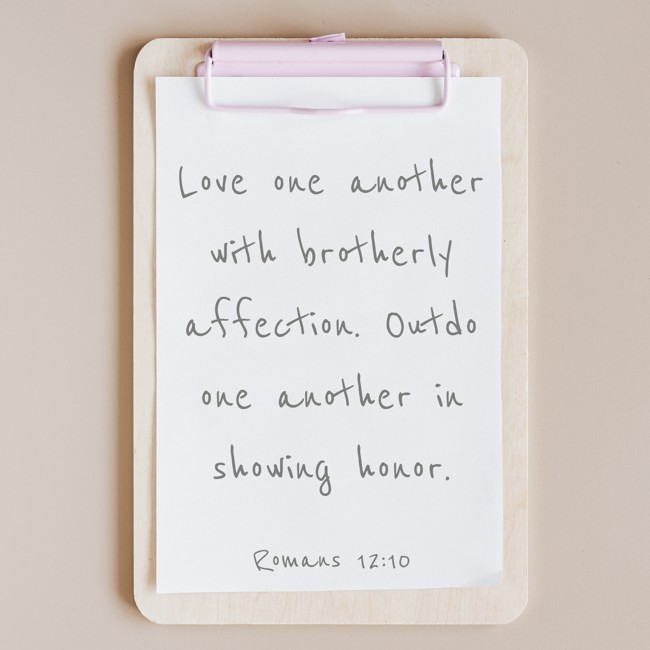 Love one another
with brotherly
affection. Outdo
one another in
showing honor.
Romans 12:10